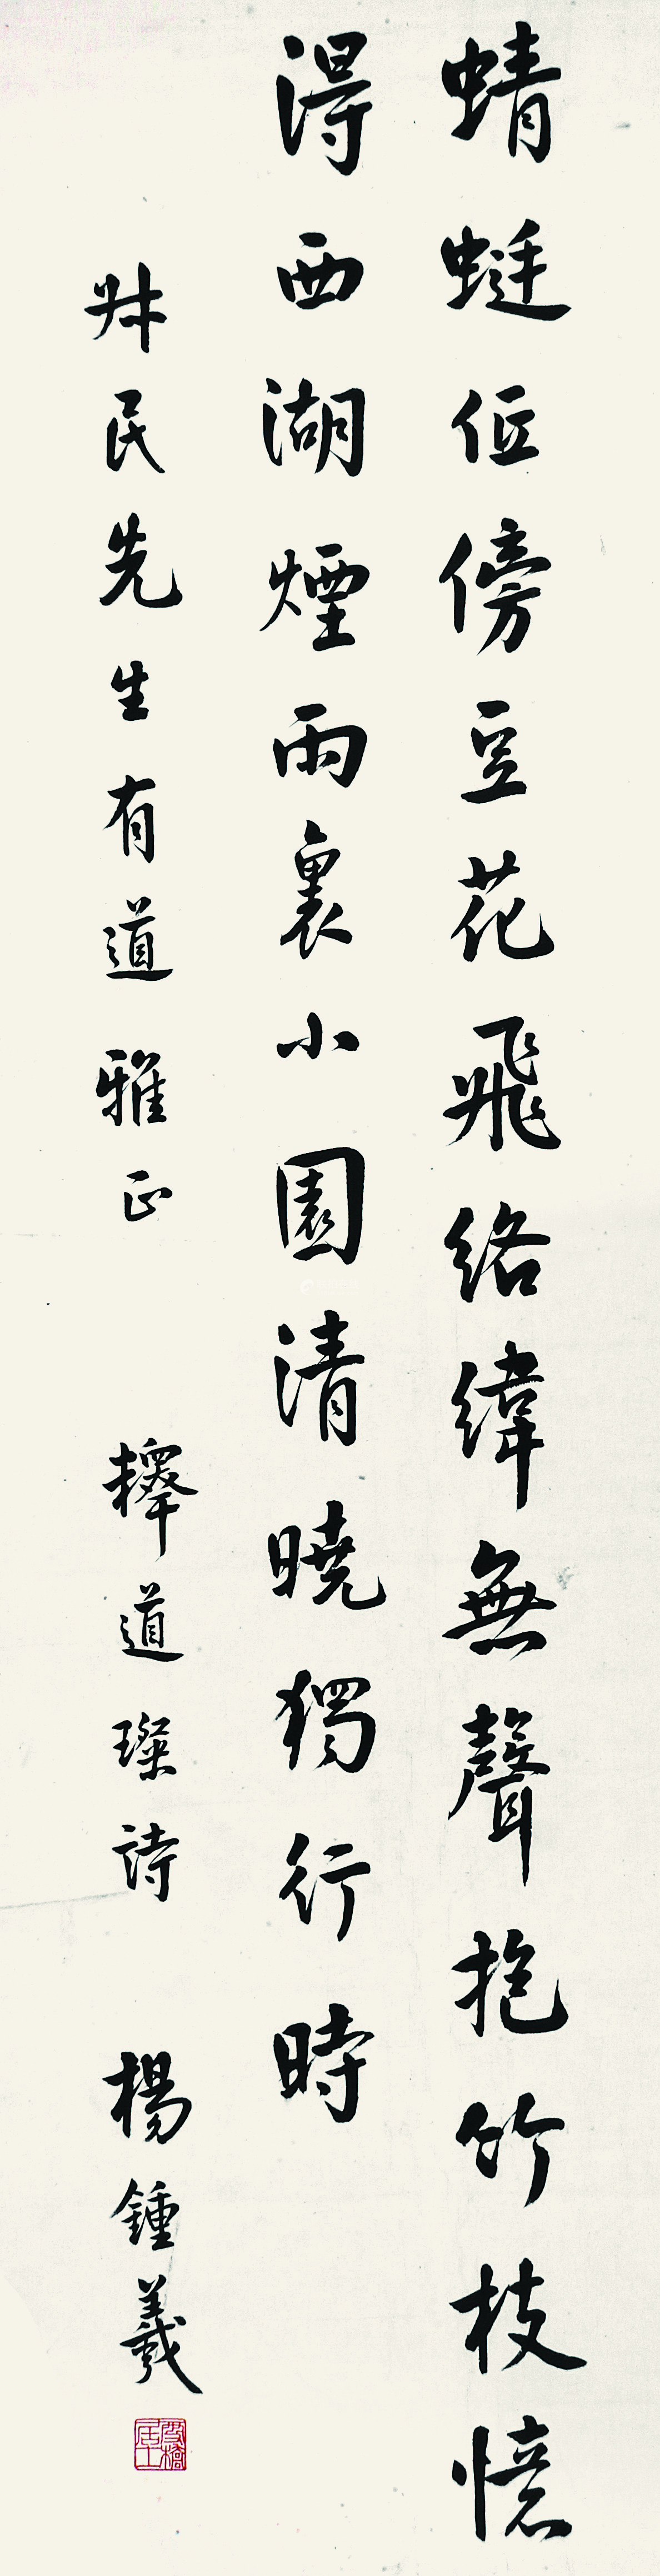 蜻蜓低傍豆花飛絡緯無聲抱竹枝憶
得西湖煙雨裏小園清曉獨行時
叔民先生有道雅正 釋道璨詩 楊鍾羲
雪橋居士